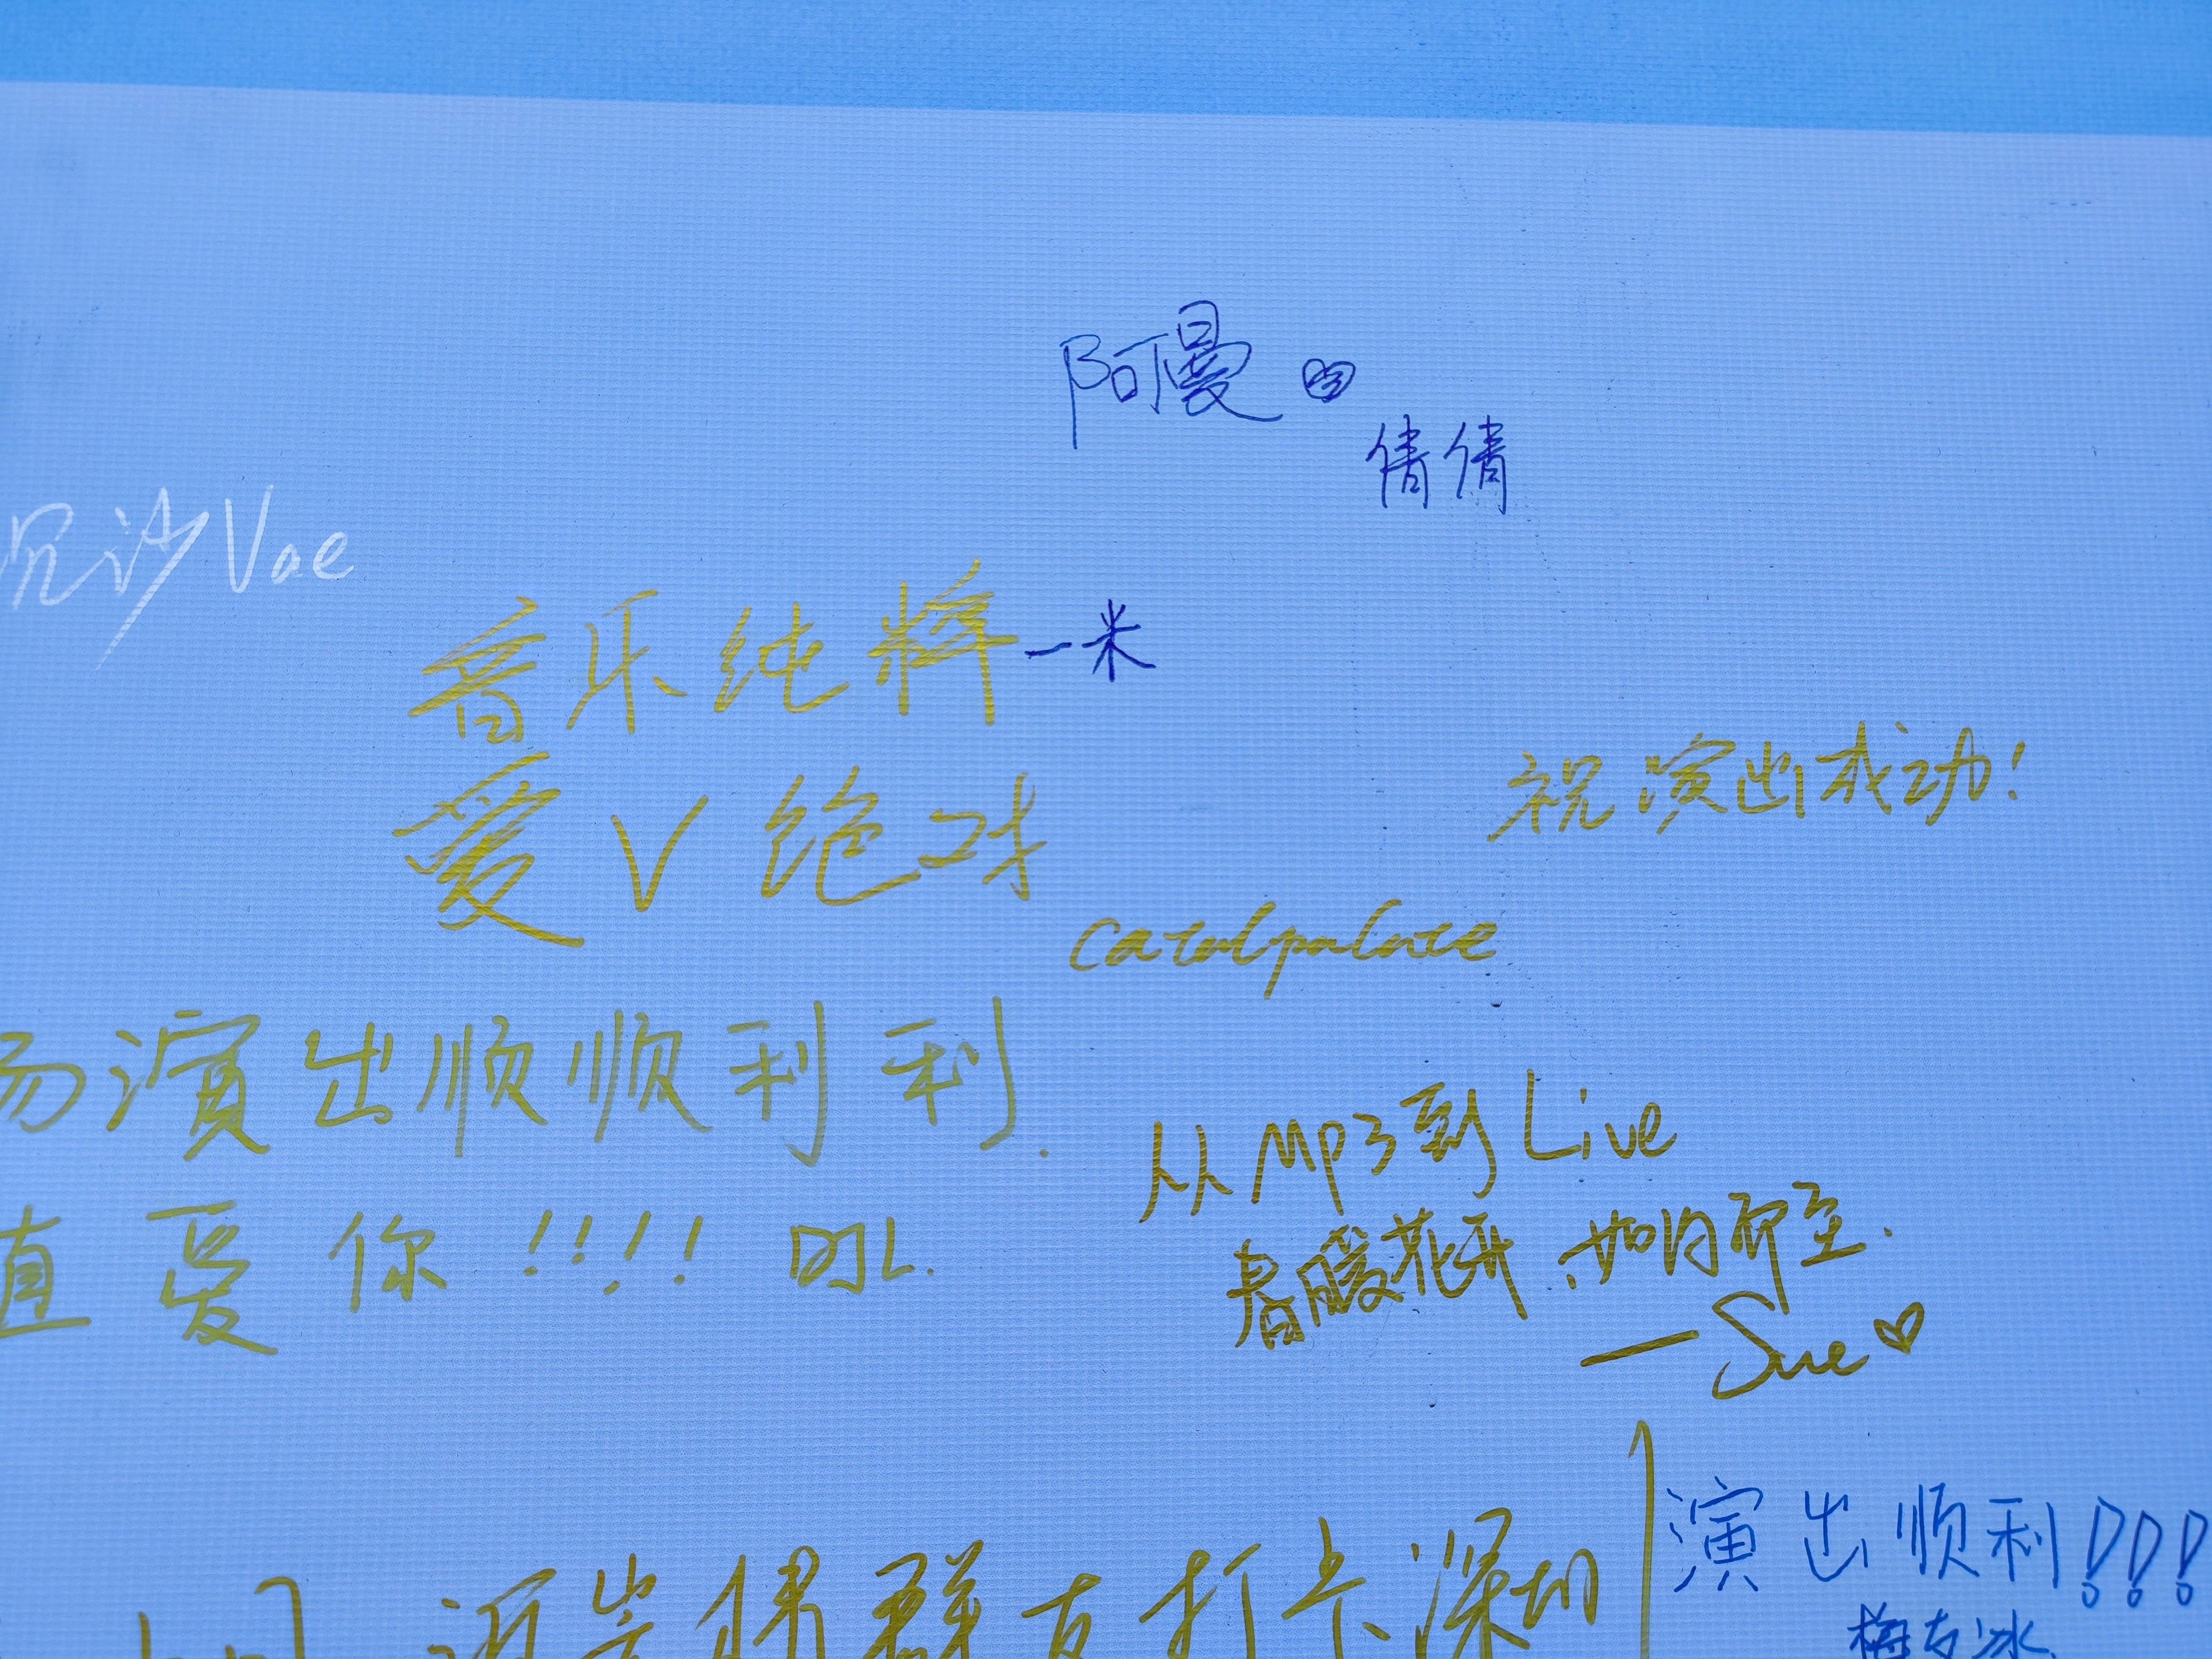 阿曼
倩倩
沉沙Vae
音乐纯粹
一米
爱V绝对
祝演出成功!
场演出顺顺利利.
从MP3到Live
直爱你!!!!
春暖花开,如约而至.
—Sue
演出顺利!!!
群友打卡深圳